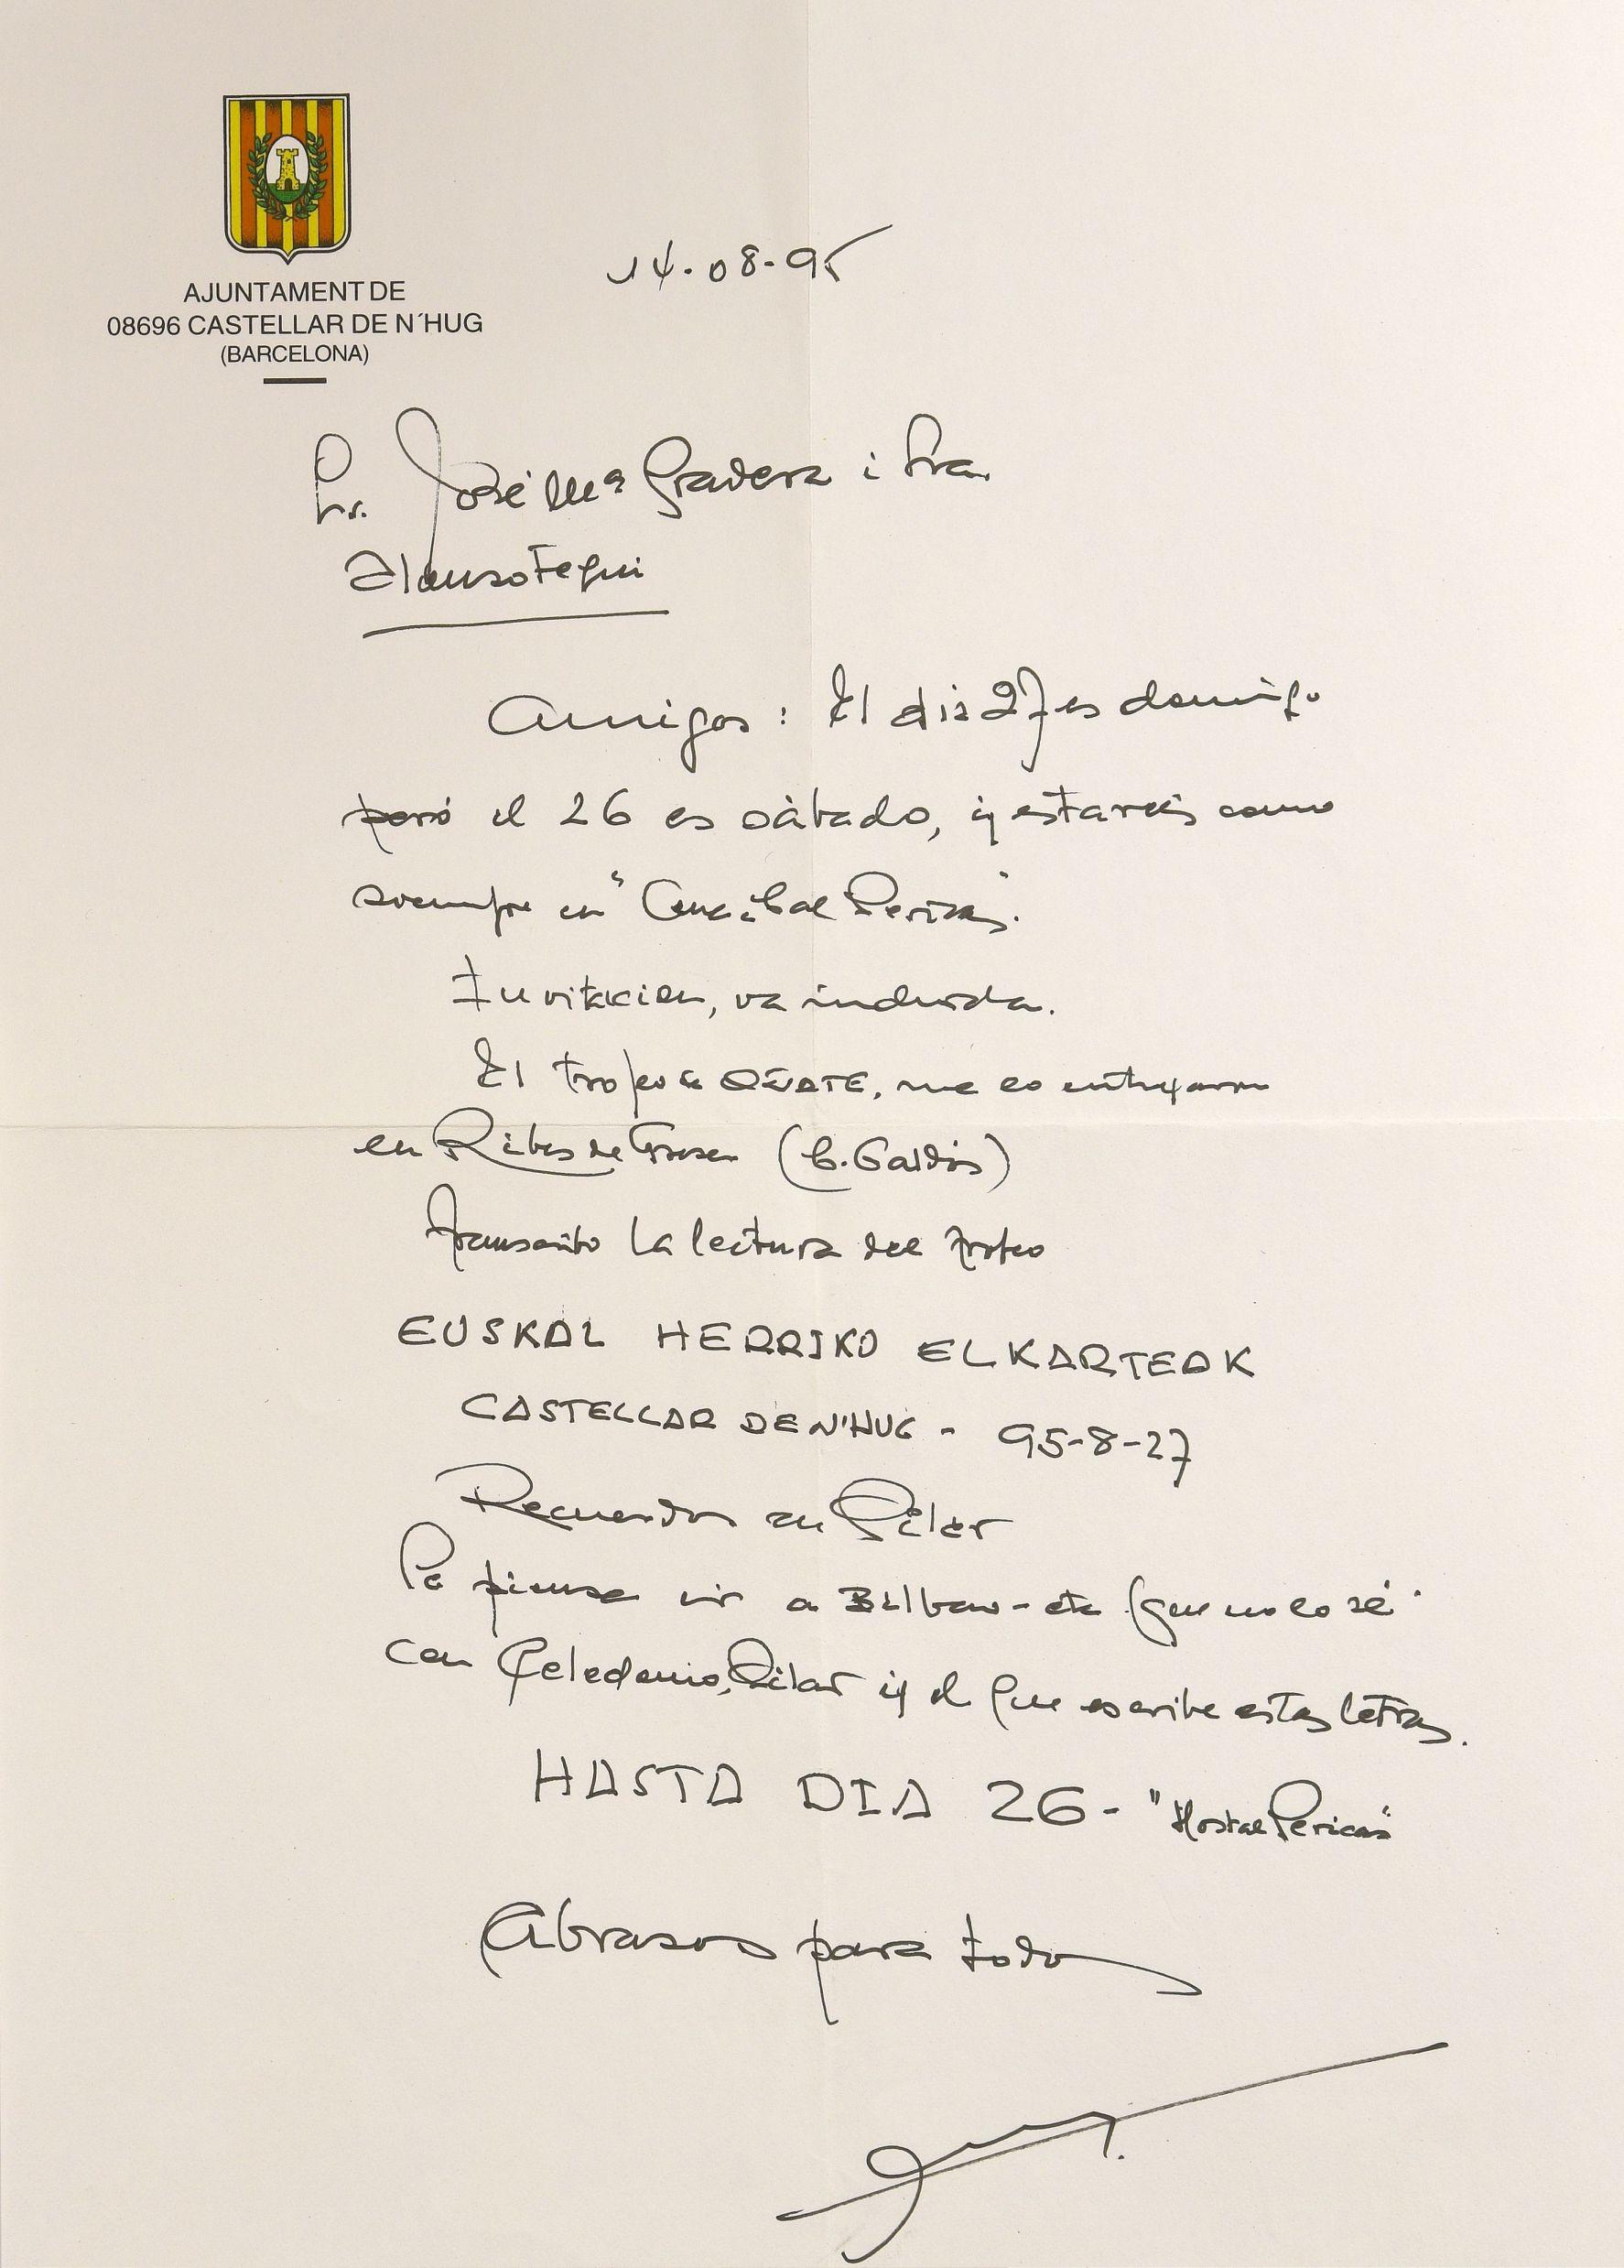 AJUNTAMENT DE
08696 CASTELLAR DE N´HUG
(BARCELONA)
14-08-95
Sr. José Mª Gradera i Sra.
Alonsotegui
Amigos: El dia 27 es domingo
però el 26 es sàbado, y estareis como
siempre en " Pericas".
Invitacion, va incluida.
El trofeo de OÑATE, me lo entregaron
en Ribes de Freser (G. Galdós)
Transcribo la lectura del trofeo
EUSKAL HERRIKO ELKARTEAK
CASTELLAR DE N'HUG - 95-8-27
Recuerdos an Pilar
Se piensa ir a Bilbao - etc (que no lo sé
con Celedonio, Pilar y el que escribe estas letras.
HASTA DIA 26 - "Hostal Pericas"
Abrasos para todos